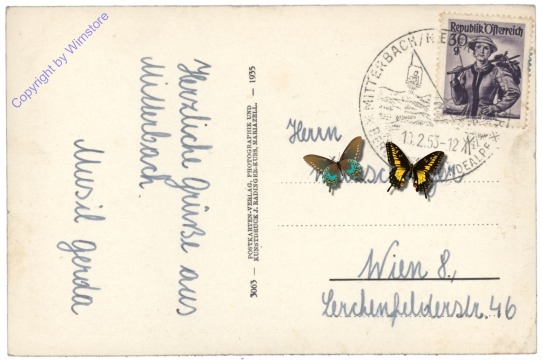 Copyright by Winstore
Herzliche Grüße aus
Mitterbach
Musil Gerda
3063 — POSTKARTEN-VERLAG, PHOTOGRAPHIE UND — 1935
KUNSTDRUCK J. RADINGER-KUSS, MARIAZELL.
Republik Österreich
30 g
MITTERBACH/
13.2.53-12
Herrn
Wien 8.,
Lerchenfelderstr. 46